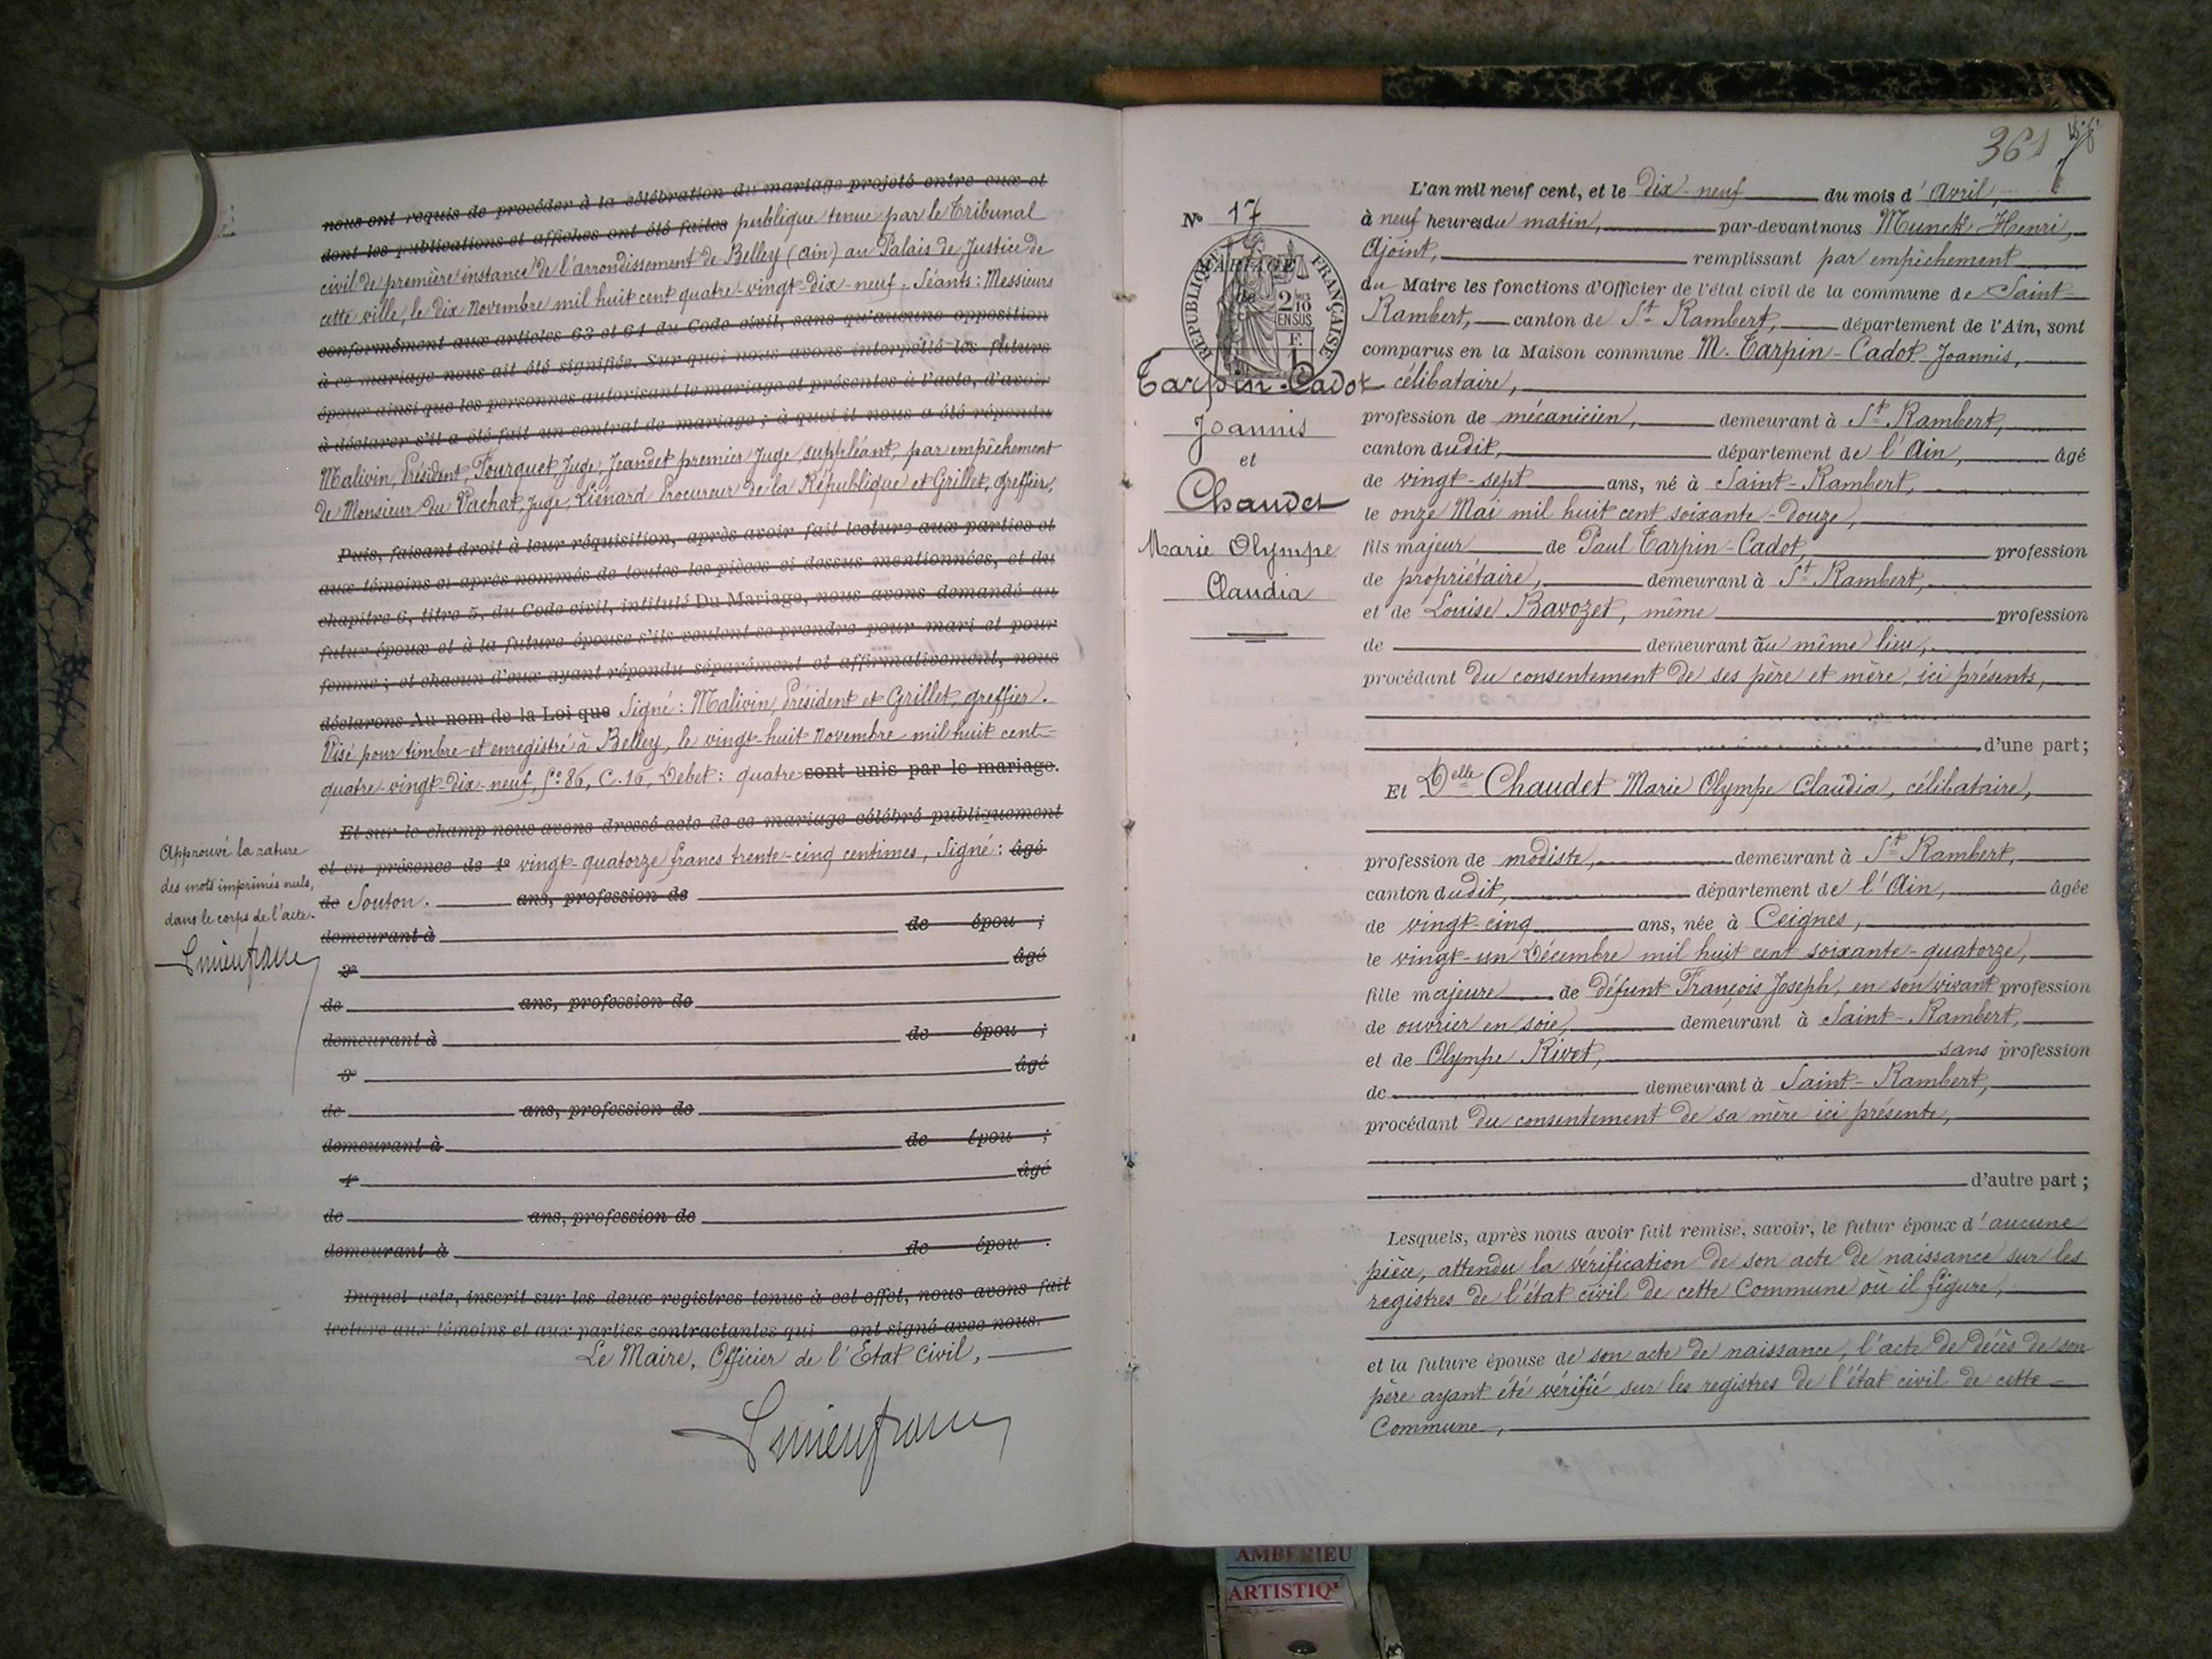 nous ont requis de procéder à la célébration du mariage projeté entre eux et
dont les publications et affiches ont été faites publique tenue par le Tribunal
civil de première instance de l'arrondissement de Belley (Ain) au Palais de Justice de
cette ville, le dix Novembre mil huit cent quatre-vingt-dix-neuf. Séants: Messieurs
conformément aux articles 63 et 64 du Code civil, sans qu'aucune opposition
à ce mariage nous ait été signifiée. Sur quoi nous avons interpellé les futurs
époux ainsi que les personnes autorisant le mariage et présentes à l'acte, d'avoir
à déclarer s'il a été fait un contrat de mariage; à quoi il nous a été répondu
Malivin, Président, Fourquet Juge, Jeandet premier Juge suppléant, par empêchement
de Monsieur du Vachat, Juge, Liénard Procureur de la République et Grillet, greffier,
Puis, faisant droit à leur réquisition, après avoir fait lecture aux parties et
aux témoins ci-après nommés de toutes les pièces ci-dessus mentionnées, et du
chapitre 6, titre 5, du Code civil, intitulé Du Mariage, nous avons demandé au
futur époux et à la future épouse s'ils veulent se prendre pour mari et pour
femme; et chacun d'eux ayant répondu séparément et affirmativement, nous
déclarons Au nom de la Loi que Signé: Malivin, Président et Grillet, greffier.
Visé pour timbre et enregistré à Belley, le vingt-huit Novembre mil huit cent-
quatre-vingt-dix-neuf, f° 86, C. 16, Debet: quatre sont unis par le mariage.
Et sur-le-champ nous avons dressé acte de ce mariage célébré publiquement
et en présence de 1° vingt-quatorze francs trente-cinq centimes, Signé: âgé
de Souton. ans, profession de
demeurant à de épou ;
2° âgé
de ans, profession de
demeurant à de épou ;
3° âgé
de ans, profession de
demeurant à de épou ;
4° âgé
de ans, profession de
demeurant à de épou .
Duquel acte, inscrit sur les deux registres tenus à cet effet, nous avons fait
lecture aux témoins et aux parties contractantes qui ont signé avec nous.
Le Maire, Officier de l'Etat Civil,
Approuvé la rature
des mots imprimés nuls,
dans le corps de l'acte.
361
N° 17
MARIAGE
de
RÉPUBLIQUE FRANÇAISE
2/10 MES
EN SUS
Tarpin-Cadot
Joannis
et
Chaudet
Marie Olympe
Claudia
L'an mil neuf cent, et le dix-neuf du mois d'Avril,
à neuf heures du matin, par-devant nous Munck Henri,
Ajoint, remplissant par empêchement
du Maire les fonctions d'Officier de l'état civil de la commune de Saint-
Rambert, canton de St Rambert, département de l'Ain, sont
comparus en la Maison commune M. Tarpin-Cadot Joannis,
célibataire,
profession de mécanicien, demeurant à St Rambert,
canton dudit, département de l'Ain, âgé
de vingt-sept ans, né à Saint-Rambert,
le onze Mai mil huit cent soixante-douze,
fils majeur de Paul Tarpin-Cadot, profession
de propriétaire, demeurant à St Rambert,
et de Louise Bavozet, même profession
de demeurant au même lieu,
procédant du consentement de ses père et mère, ici présents,
d'une part;
Et Delle Chaudet Marie Olympe Claudia, célibataire,
profession de modiste, demeurant à St Rambert,
canton dudit, département de l'Ain, âgée
de vingt-cinq ans, née à Ceignes,
le vingt-un Décembre mil huit cent soixante-quatorze,
fille majeure de défunt François Joseph, en son vivant profession
de ouvrier en soie, demeurant à Saint-Rambert,
et de Olympe Rivet, sans profession
de demeurant à Saint-Rambert,
procédant du consentement de sa mère ici présente,
d'autre part;
Lesquels, après nous avoir fait remise, savoir, le futur époux d'aucune
pièce, attendu la vérification de son acte de naissance sur les
registres de l'état civil de cette Commune où il figure,
et la future épouse de son acte de naissance, l'acte de décès de son
père ayant été vérifié sur les registres de l'état civil de cette
Commune,
AMBERIEU
ARTISTIQ